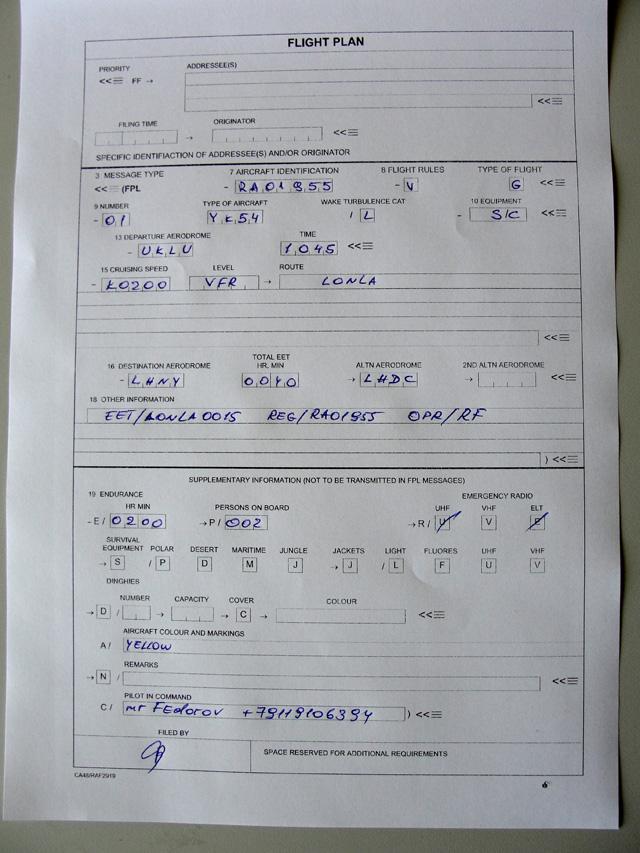 FLIGHT PLAN
PRIORITY ADDRESSEE(S)
<<≡ FF →
<<≡
FILING TIME ORIGINATOR
→ <<≡
SPECIFIC IDENTIFIACTION OF ADDRESSEE(S) AND/OR ORIGINATOR
3 MESSAGE TYPE 7 AIRCRAFT IDENTIFICATION 8 FLIGHT RULES TYPE OF FLIGHT
<<≡ (FPL - RA01955 - V G <<≡
9 NUMBER TYPE OF AIRCRAFT WAKE TURBULENCE CAT 10 EQUIPMENT
- 01 YK54 / L - S/C <<≡
13 DEPARTURE AERODROME TIME
- UKLU 1045 <<≡
15 CRUISING SPEED LEVEL ROUTE
- K0200 VFR → LONLA
<<≡
16 DESTINATION AERODROME TOTAL EET HR. MIN ALTN AERODROME 2ND ALTN AERODROME
- LHNY 0040 → LHDC → <<≡
18 OTHER INFORMATION
EET/LONLA0015 REG/RA01955 OPR/RF
) <<≡
SUPPLEMENTARY INFORMATION (NOT TO BE TRANSMITTED IN FPL MESSAGES)
19 ENDURANCE EMERGENCY RADIO
HR MIN PERSONS ON BOARD UHF VHF ELT
- E / 0200 → P / 002 → R / U V E
SURVIVAL EQUIPMENT POLAR DESERT MARITIME JUNGLE JACKETS LIGHT FLUORES UHF VHF
→ S / P D M J → J / L F U V
DINGHIES
NUMBER CAPACITY COVER COLOUR
→ D / → → C → <<≡
AIRCRAFT COLOUR AND MARKINGS
A / YELLOW
REMARKS
→ N / <<≡
PILOT IN COMMAND
C / mr FEdorov +79119106394 ) <<≡
FILED BY
SPACE RESERVED FOR ADDITIONAL REQUIREMENTS
CA48/RAF2919